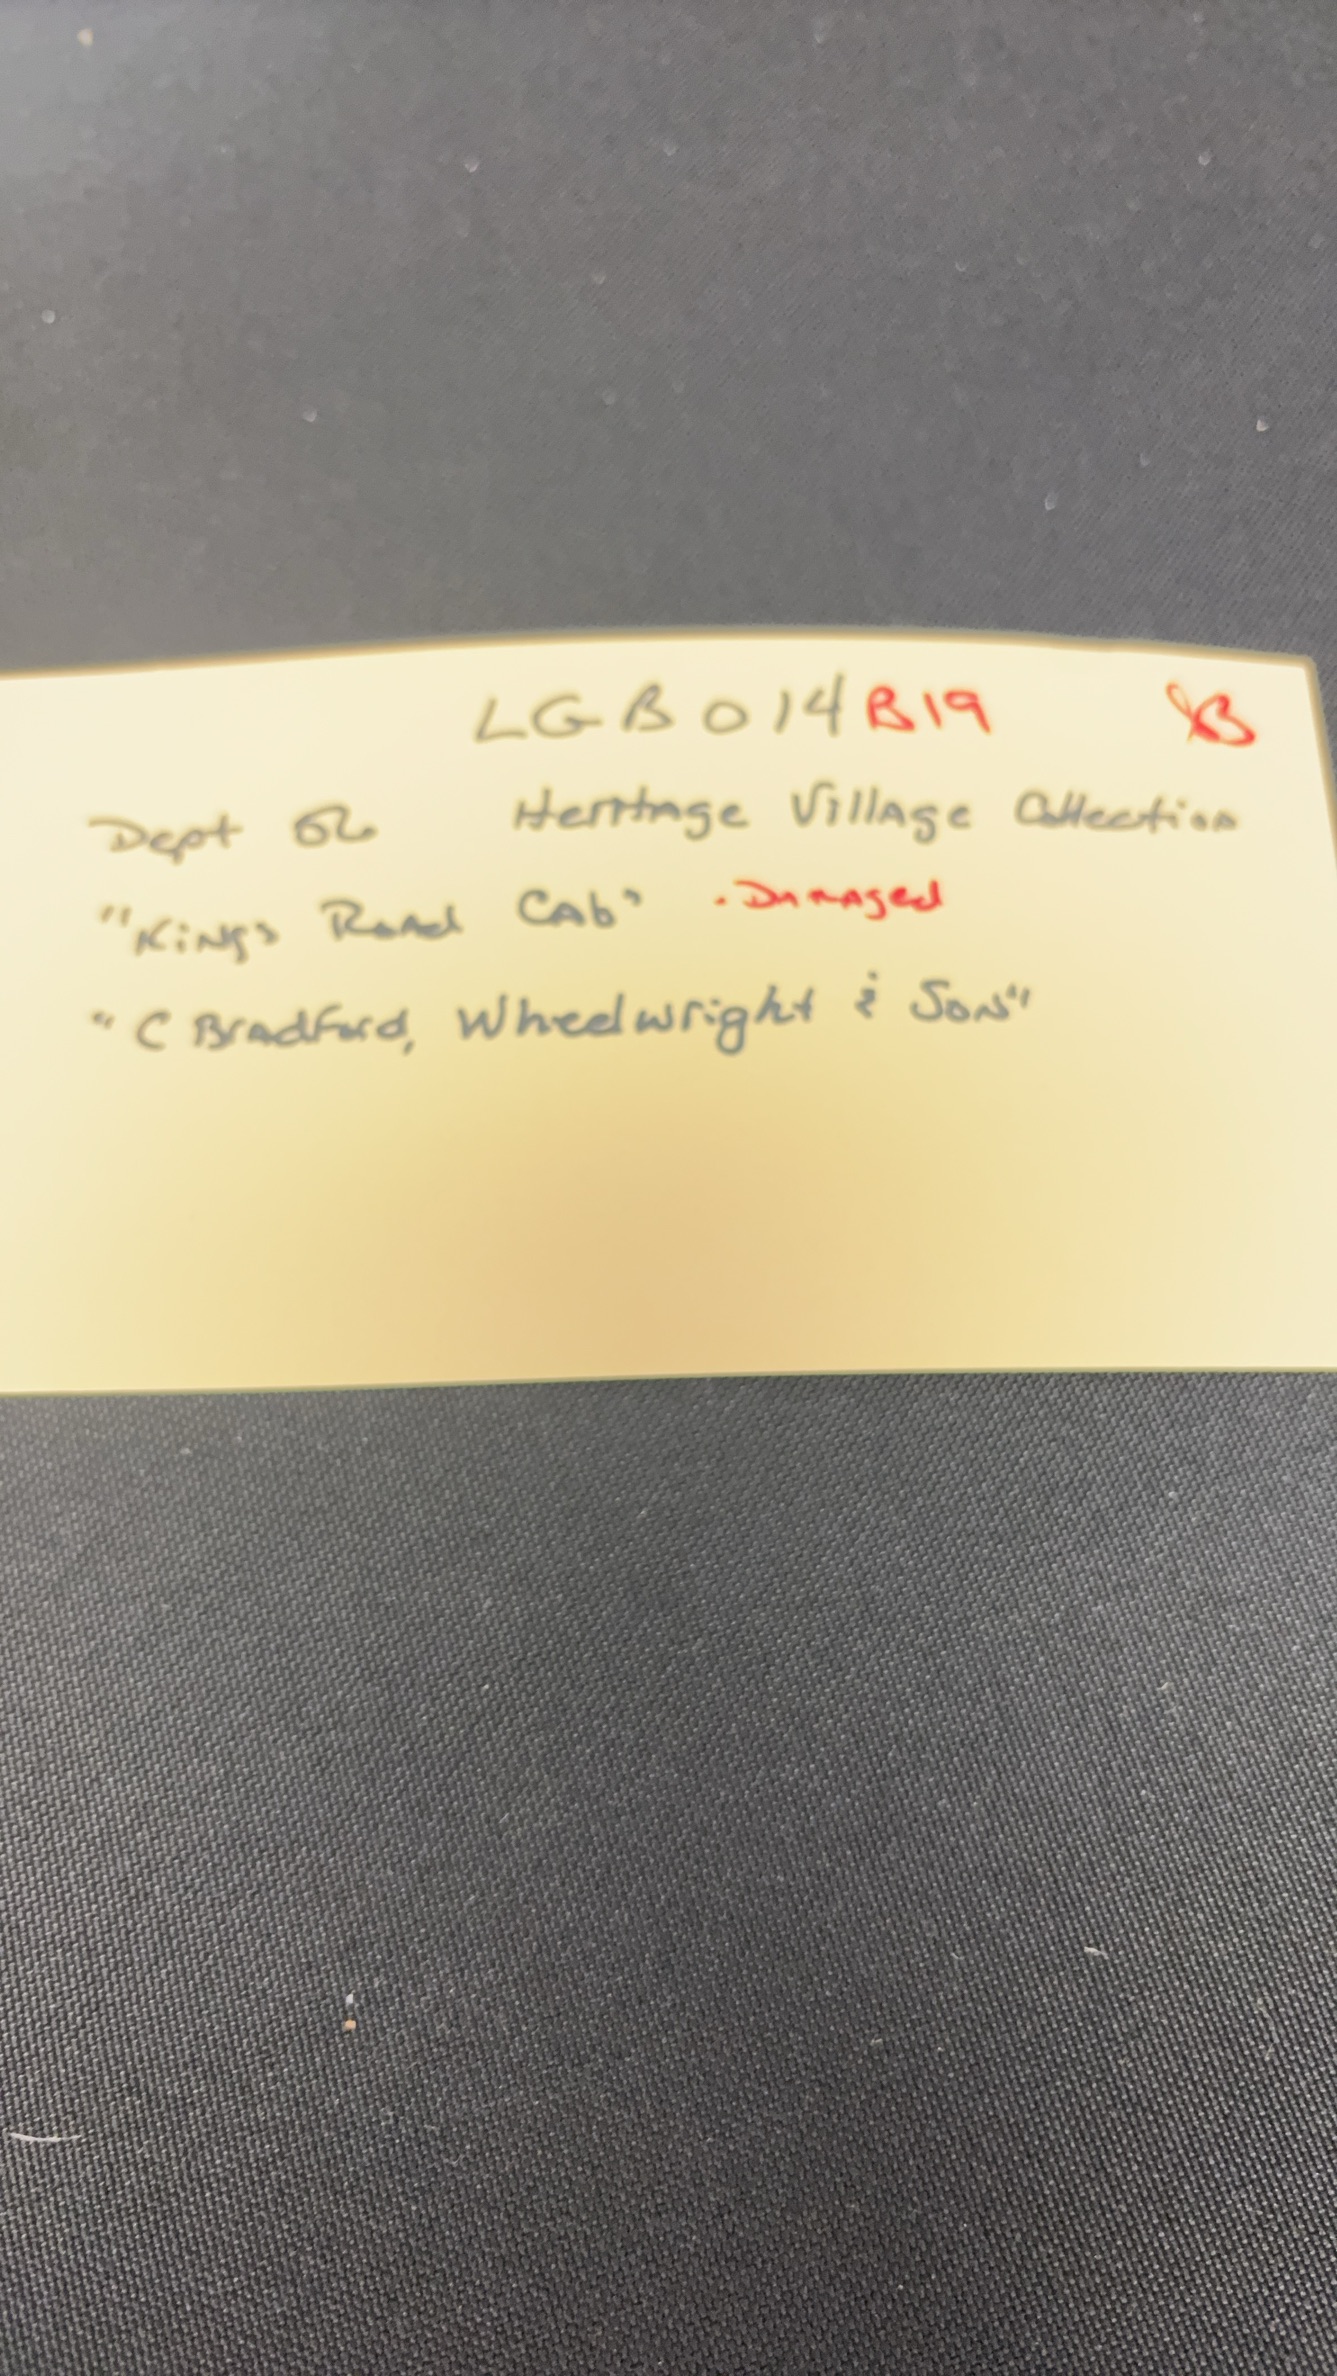 LGB014 B19 B
Dept 56 Heritage Village Collection
"Kings Road Cab" - Damaged
"C Bradford, Wheelwright & Son"